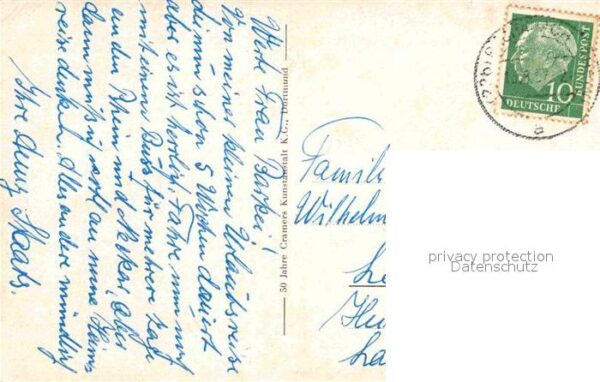 Werte Frau Barkei!
Von meiner kleinen Urlaubsreise
die nun schon 5 Wochen dauert
aber es ist herrlich. Fahre nun noch
mit einem Bus für mehrere Tage
an den Rhein und Neckar, aber
dann muß ich wohl an eine Heim-
reise denken. Alles andere mündlich
Ihre Anny Staats.
50 Jahre Cramers Kunstanstalt K.G., Dortmund
Familie
Wilhelm
10
DEUTSCHE
BUNDESPOST
a
privacy protection
Datenschutz